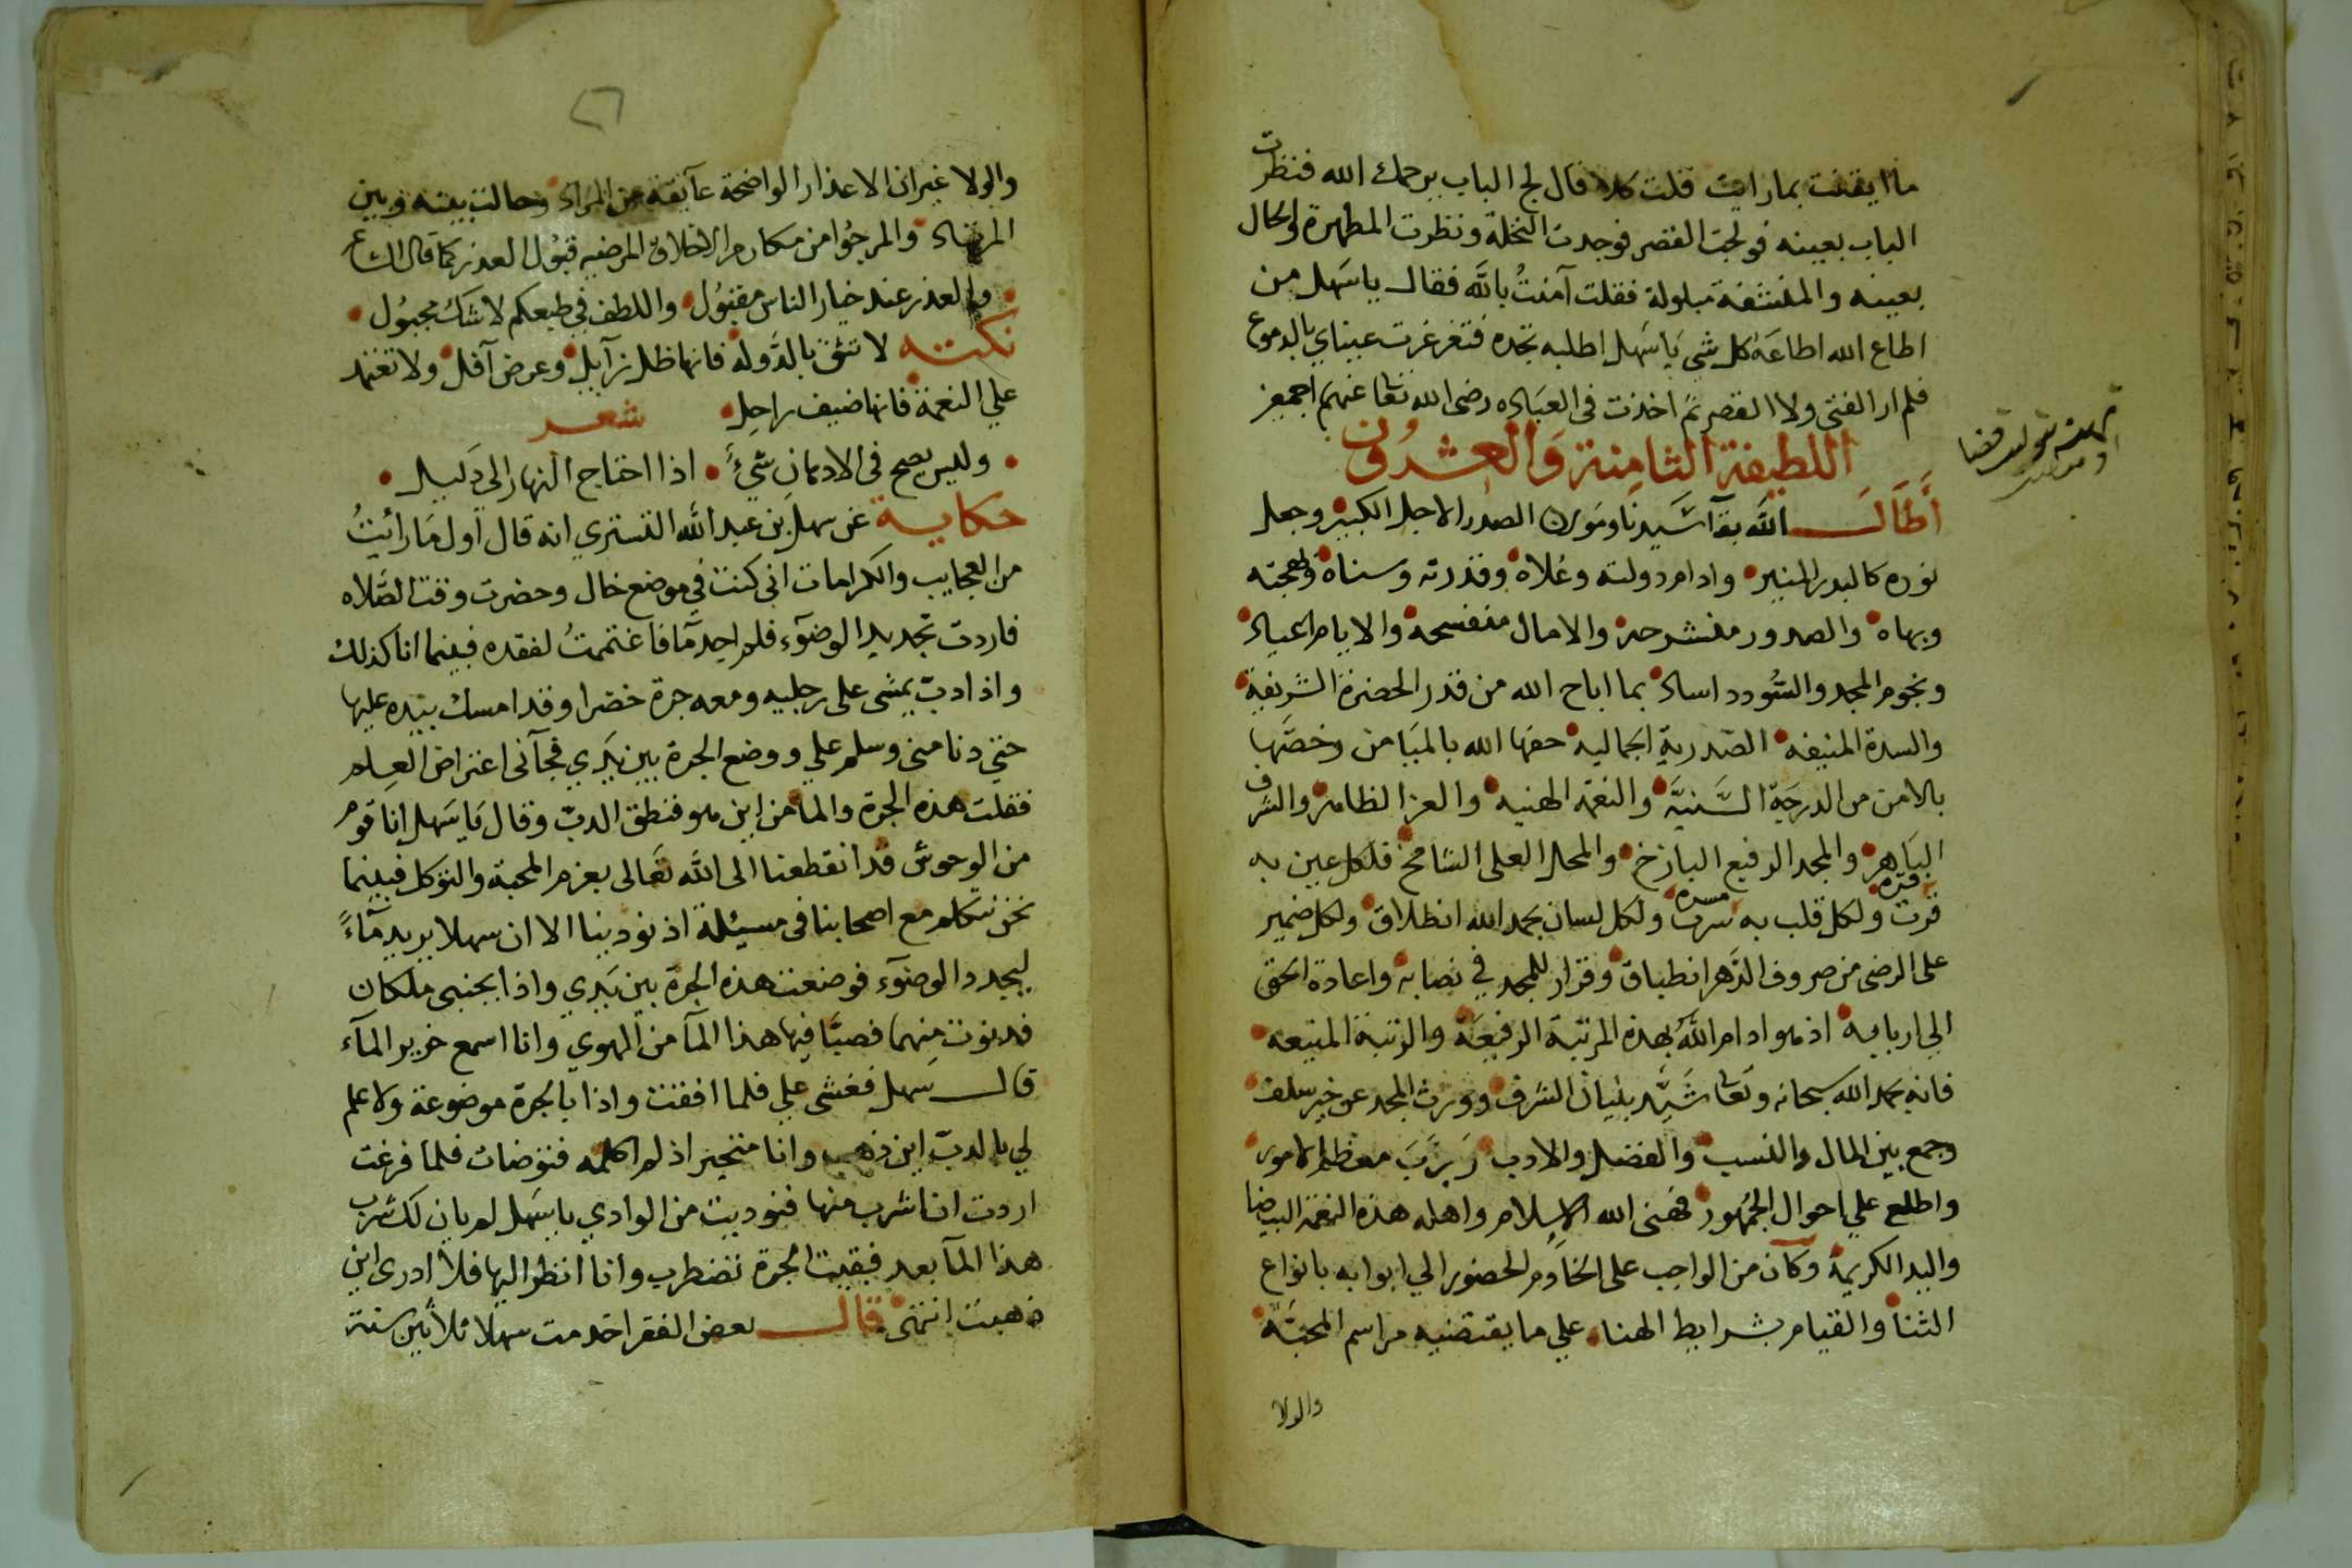 ما ايقنت بما رايت قلت كلا قال لج الباب يرحمك الله فنظرت
الباب بعينه فولجت القصر فوجدت النخلة ونظرت المطهرة والحال
بعينه والمنشفة مبلولة فقلت آمنتُ بالله فقال يا سَهل من
اطاع الله اطاعَهُ كل شي يا سَهل اطلبه تجده فتغرغرت عيناي بالدموع
فلم ار الفتى ولا القصر ثم اخذت في العبَاده رضى الله تعا عنهم اجمعين
اللطيفة الثامِنة وَالعشرُون
أَطَالَ الله بقآ سَيدنا ومَولانا الصدر الاجل الكبير وجعل
نوره كالبدر المنير وادام دولته وعُلاه وقدرته وسناه وبهجته
وبهاه والصدور منشرحة والامال منفسحة والايام اعياء
ونجوم المجد والسُودد اساء بما اباح الله من قدر الحضرة الشريفة
والسدة المنيفه الصّدرية الجماليه حفها الله بالميَامن وخصَّها
بالامن من الدرجَة السَّنيَّه والنعمَه الهنيه والعز الظاهر والشرف
البَاهر والمجد الرفيع الباذخ والمحل العلى الشامخ فلكل عين به
قرت قرة ولكل قلب به سرت مسرة ولكل لسان بحمد الله انطلاق ولكل ضمير
على الرضى من صروف الدَهر انطباق وقرار للمجد في نصابه واعادة الحق
الي اربابه اذ هو ادام اللهُ بهذه المرتبة الرفيعَة والرتبة المنيعه
فانه بحمد الله سبحانه وتعا شَيَّد بنيان الشرف وورث المجد عن خير سلف
وجمع بين المال والنسب والفضل والادب رَتَّبَ معظم الامور
واطلع علي احوال الجمُهور فهنى الله الاسلام واهله هذه النعمَة البيضا
واليد الكريمة وكان من الواجب على الخادم الحضور الي ابوابه بانواع
الثنا والقيام بشرايط الهناء علي ما يقتضيه مراسم المحبَّة
والولا
والولا غير ان الاعذار الواضحة عآيقة عن المراد وحالت بينه وبين
والمرجُوا من مكارم الاخلاق المرضيه قبُول العذر كما قال الشاعر
والعذر عند خيار الناس مقبُول واللطف في طبعكم لا شك مجبُول
نكتــه لا تثق بالدَّولة فانها ظل زآيل وعرض آفل ولا تعتمد
علي النعمَة فانها ضيف راحِل شعــر
وليس يصح فى الاذهانِ شيءٌ اذا احتاج النهار الي دَليل
حكاية عن سهل بن عبد الله التستري انه قال اول مَا رأيتُ
من العجايب والكرامات انى كنت في موضع خال وحضرت وقت الصَّلاه
فاردت تجديد الوضوء فلم اجد مآ فاغتممتُ لفقده فبينما انا كذلك
واذا دبّ يمشى على رجليه ومعه جرة خضرا وقد امسك بيَده عليها
حتي دنا منى وسلم علي ووضع الجرة بين يَدي فجآنى اعتراض العِلم
فقلت هذه الجرة والما من اين هو فنطق الدبّ وقال يَا سَهل انا قوم
من الوحوش قد انقطعنا الى الله تعَالى بعزم المحبة والتوكل فبينما
نحن نتكلم مع اصحابنا فى مسئلة اذ نودينا الا ان سهلا يريد مآءً
ليجدد الوضوء فوضعت هذه الجرة بين يَدي واذا بجنبى ملكان
فدنوت مِنهما فصبَّا فيها هذا المآ من الهوي وانا اسمع خرير المآء
قال سَهل فغشى علي فلما افقت واذا بالجرة موضوعة ولا علم
لي بالدبّ اين ذهب وانا متحير اذ لم اكلمه فتوضات فلما فرغت
اردت ان اشرب منها فنوديت من الوادي يا سَهل لم يان لك شرب
هذا المآ بعد فبقيت الجرة تضطرب وانا انظر اليها فلا ادرى اين
ذهبت انتهى قال بعض الفقرا خدمت سهلا ثلاثين سنة